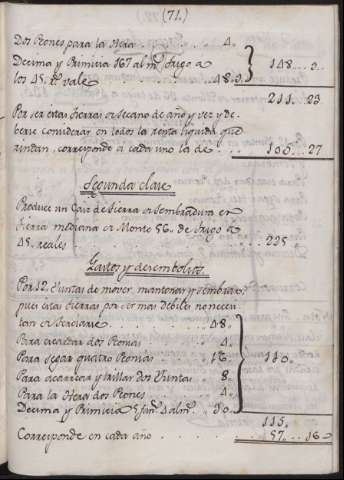 (71.)
Dos Peones para la Hera . . . . 4.
Decima y Primicia 167 alm.s Trigo a
los 45. r.s vale . . . . 48.3. 148...3..
211...23
Por ser estas tierras de secano de año y vez y de-
berse considerar en todos la renta liquida que
rindan, corresponde a cada uno la de . . . 105...27
Segunda clase
Produce un Caiz de tierra de sembradura en
tierra mediana de Monte 5f. de trigo a
45. reales . . . . . 225
Gastos y desembolsos.
Por 12. Juntas de mover, mantornar y sembrar,
pues estas tierras por ser mas debiles no necesi-
tan de terciarse . . 48.
Para escaltar dos Peonas . . . 4.
Para segar quatro Peonas . . . 16. 110..
Para acarrear y trillar dos Juntas . 8.
Para la Hera dos Peones . . . 4.
Decima y Primicia 8 fan.s 4 alm.s . . 30.
115..
Corresponde en cada año . . . . 57...16